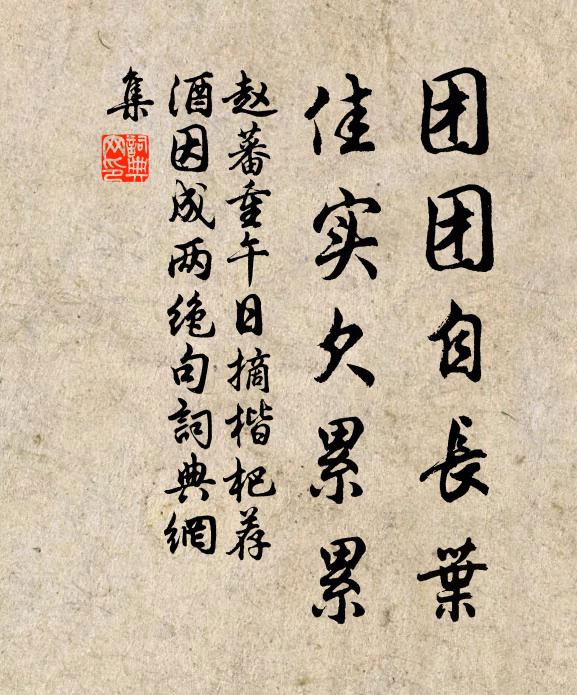 团团自長葉
佳实欠累累
赵蕃重午日摘楷杷荐
酒因成两绝句詞典網
集
詞典
网印